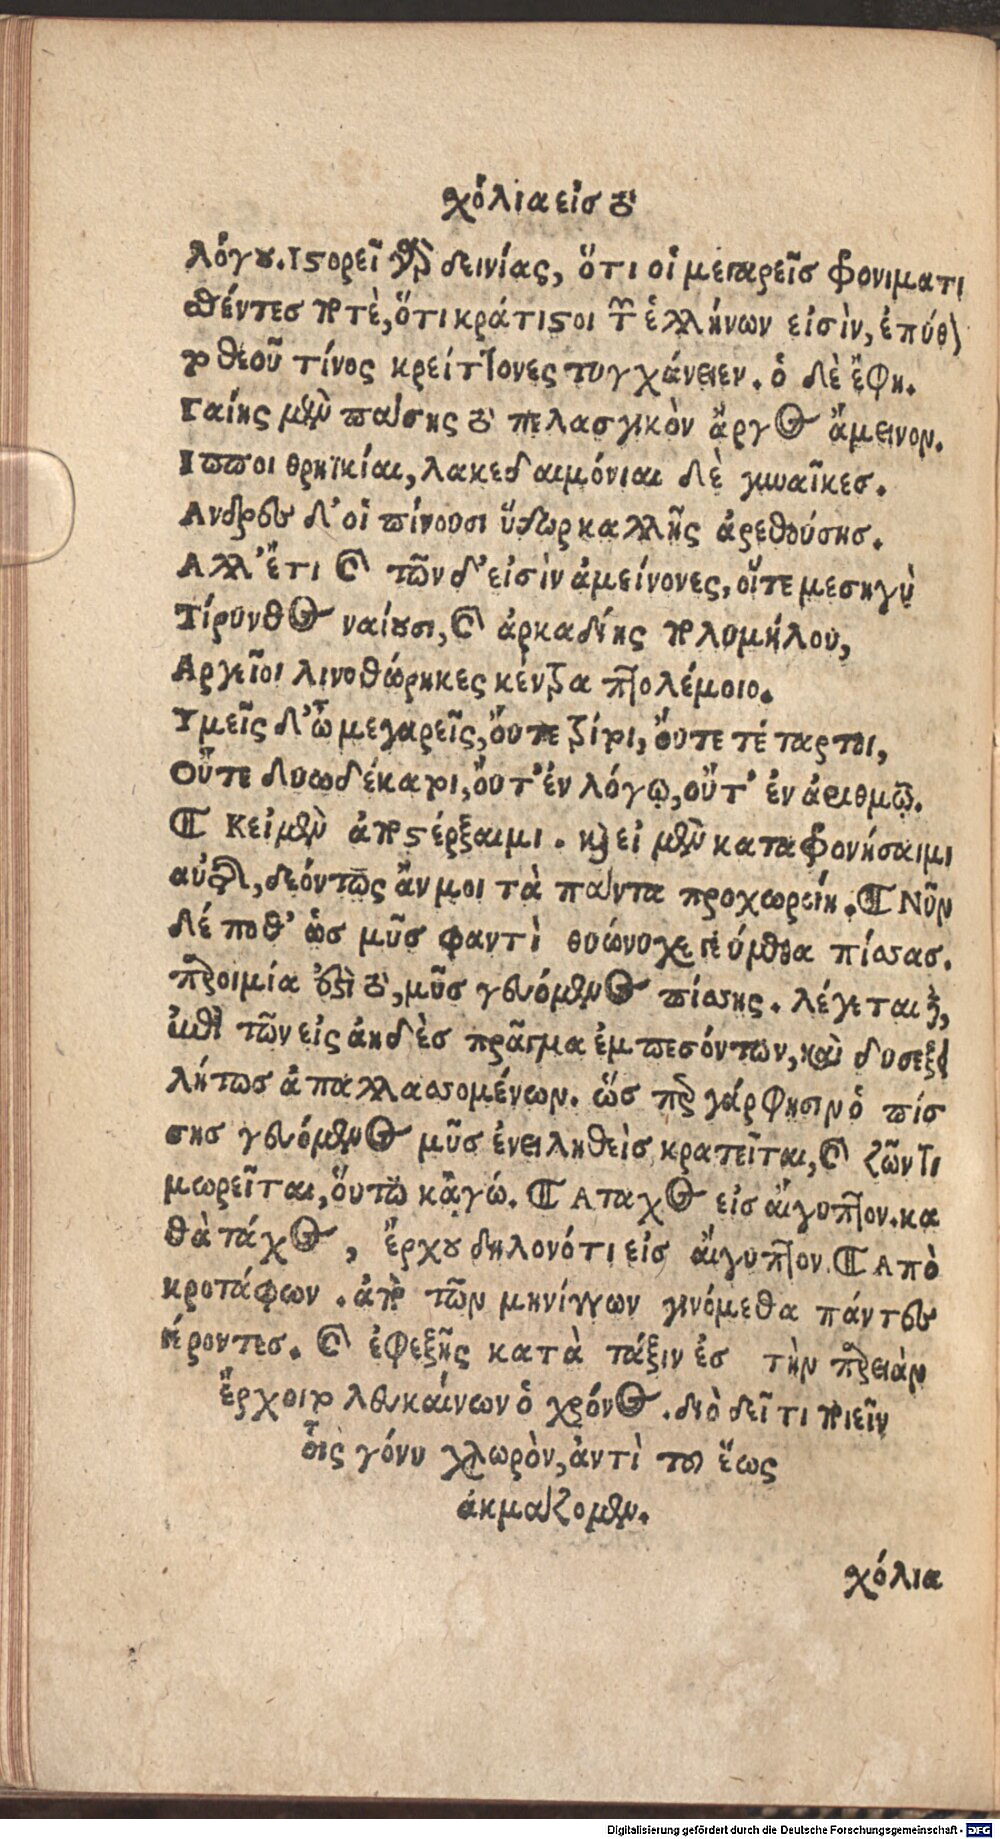 χόλια εἰσ τὸ
λόγου. Ιστορεῖ γὰρ δεινίας, ὅτι οἱ μεγαρεῖσ φρονιματι
σθέντεσ ποτὲ, ὅτι κράτιστοι τῶν ἑλλήνων εἰσὶν, ἐπύθον
το θεοῦ τίνος κρείττονες τυγχάνειεν. ὁ δὲ ἔφη.
Γαίης μὲν πάσης τὸ πελασγικὸν ἄργος ἄμεινον.
Ιπποι θρηϊκίαι, λακεδαιμόνιαι δὲ γυναῖκεσ.
Ανδρες δ' οἱ πίνουσι ὕδωρ καλλῆς ἀρεθούσησ.
Αλλ' ἔτι καὶ τῶνδ' εἰσὶν ἀμείνονες, οἵτε μεσηγὺ
Τίρυνθος ναίουσι, καὶ ἀρκαδίης πολυμήλου,
Αργεῖοι λινοθώρηκες κέντρα πτολέμοιο.
Υμεῖς δ' ὦ μεγαρεῖς, ὄυτε τρίτοι, ὄυτε τέταρτοι,
Οὔτε δυωδέκατοι, ὄυτ' ἐν λόγῳ, οὔτ' ἐν ἀριθμῷ.
¶ Κεἰ μὲν ἀποστέρξαιμι. καὶ εἰ μὲν καταφρονήσαιμι
αὐτῆς, δεόντως ἄν μοι τὰ πάντα προχωρείη. ¶ Νῦν
δέ ποθ' ὡσ μῦσ φαντὶ θυώνυχε γεύμεθα πίσσασ.
παροιμία ἐπὶ τὸ, μῦσ γευόμενος πίσσης. λέγεται δὲ,
ἐπὶ τῶν εἰς ἀηδὲσ πρᾶγμα ἐμπεσόντων, καὶ δυσεξι
λήτωσ ἀπαλλασσομένων. ὥσπερ γάρ φησιν ὁ πίσ
σησ γευόμενος μῦσ ἐνειληθεὶσ κρατεῖται, καὶ ζῶν τι
μωρεῖται, ὅυτω κᾀγώ. ¶ Αταχος εἰσ αἴγυπτον. κα
θὰ τάχος, ἔρχου δηλονότι εἰσ αἴγυπτον. ¶ Απὸ
κροτάφων. ἀπὸ τῶν μηνίγγων γινόμεθα πάντες
γέροντεσ. καὶ ἐφεξῆς κατὰ τάξιν ἐσ τὴν παρειὰν
ἔρχοιτο λευκαίνων ὁ χρόνος. διὸ δεῖ τι ποιεῖν
ὧις γόνυ χλωρὸν, ἀντὶ τοῦ ἕως
ἀκμάζομεν.
χόλια
Digitalisierung gefördert durch die Deutsche Forschungsgemeinschaft - DFG